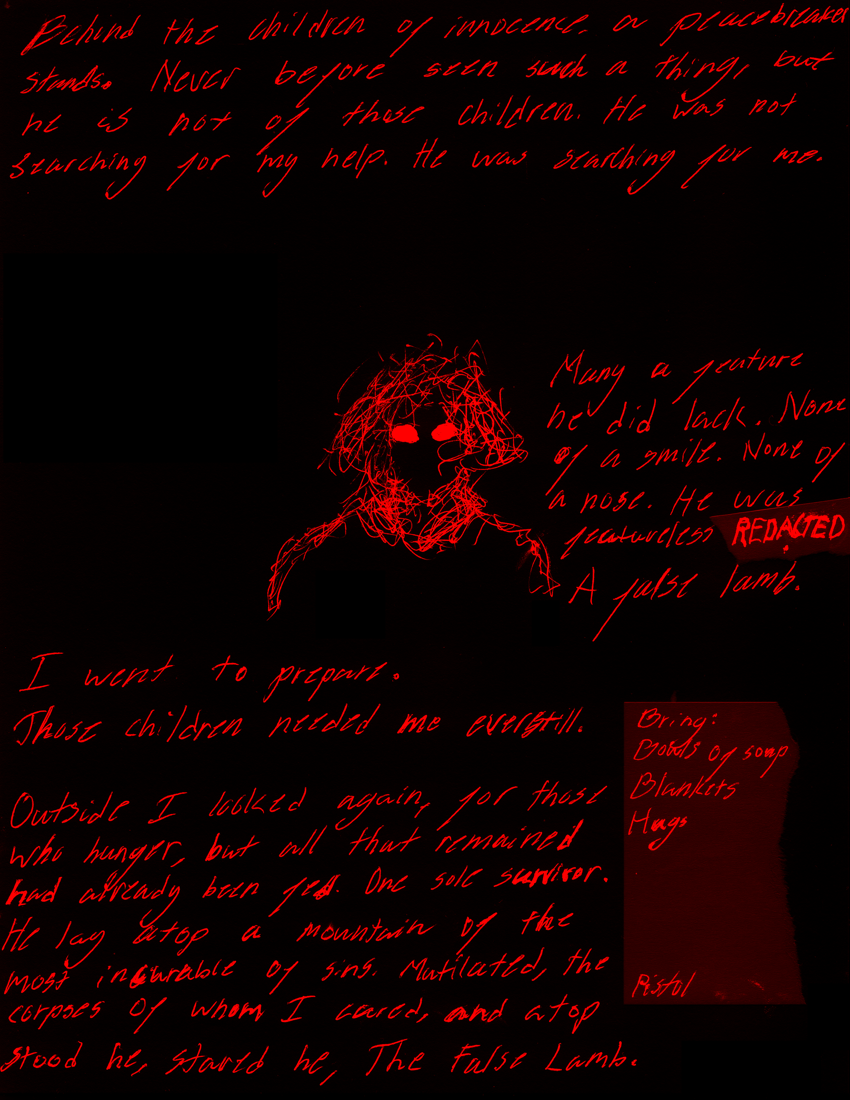 Behind the children of innocence, a peacebreaker
stands. Never before seen such a thing, but
he is not of those children. He was not
searching for my help. He was searching for me.
Many a feature
he did lack. None
of a smile. None of
a nose. He was
featureless REDACTED
A false lamb.
I went to prepare.
Those children needed me everstill.
Bring:
Bowls of soup
Blankets
Hugs
Pistol
Outside I looked again, for those
who hunger, but all that remained
had already been fed. One sole survivor.
He lay atop a mountain of the
most incurable of sins. Mutilated, the
corpses of whom I cared, and atop
stood he, stared he, The False Lamb.